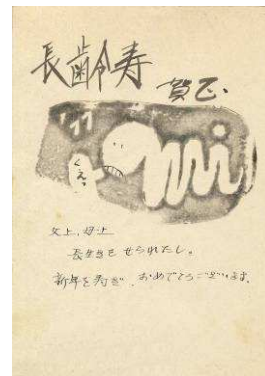 長齢寿
賀正
'77
mi
父上、母上
長生きをせられたし。
新年を寿ぎ、おめでとうございます。